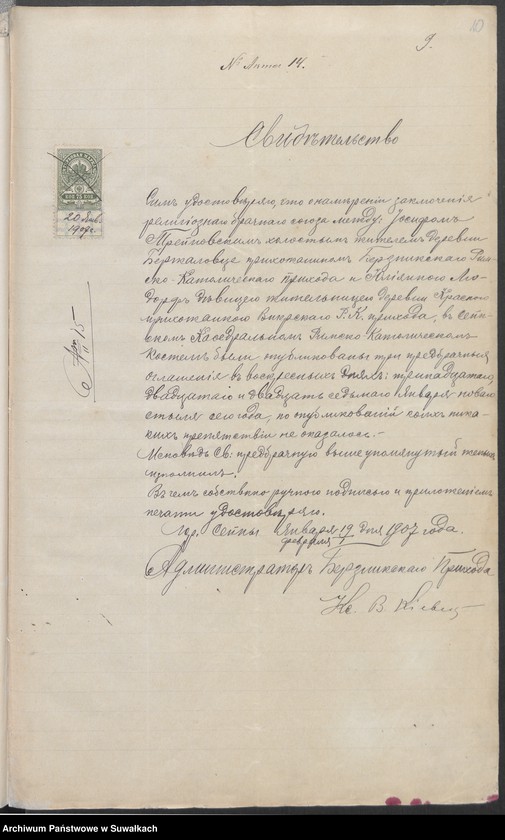 9.
№ Акта 14.
Свидѣтельство
20 Янв
1907 г.
Симъ удостовѣряю, что о намѣреніи заключенія
религіознаго брачнаго союза между: Іосифомъ
холостымъ жителемъ деревни
Бержаловце прихожаниномъ Бержникскаго Рим-
ско-Католическаго прихода и
дѣвицею жительницею деревни Красное
прихожанкой В. К. прихода, въ Сейн-
скомъ Каѳедральномъ Римско Католическомъ
Костелѣ были публикованы три предбрачныя
оглашенія въ воскресныхъ дняхъ: тринадцатаго,
двадцатаго и двадцать седьмаго Января новаго
стиля сего года, по публикованіи коихъ ника-
кихъ препятствій не оказалось.-
Исповѣдь Св: предбрачную вышеупомянутый женихъ
исполнилъ.
Въ чемъ собственно ручною подписью и приложеніемъ
печати удостовѣряю.
Гор. Сейны Января 19 дня 1907 года.
Февраля 1
Администраторъ Бержникскаго Прихода
Кс. В.
Archiwum Państwowe w Suwałkach